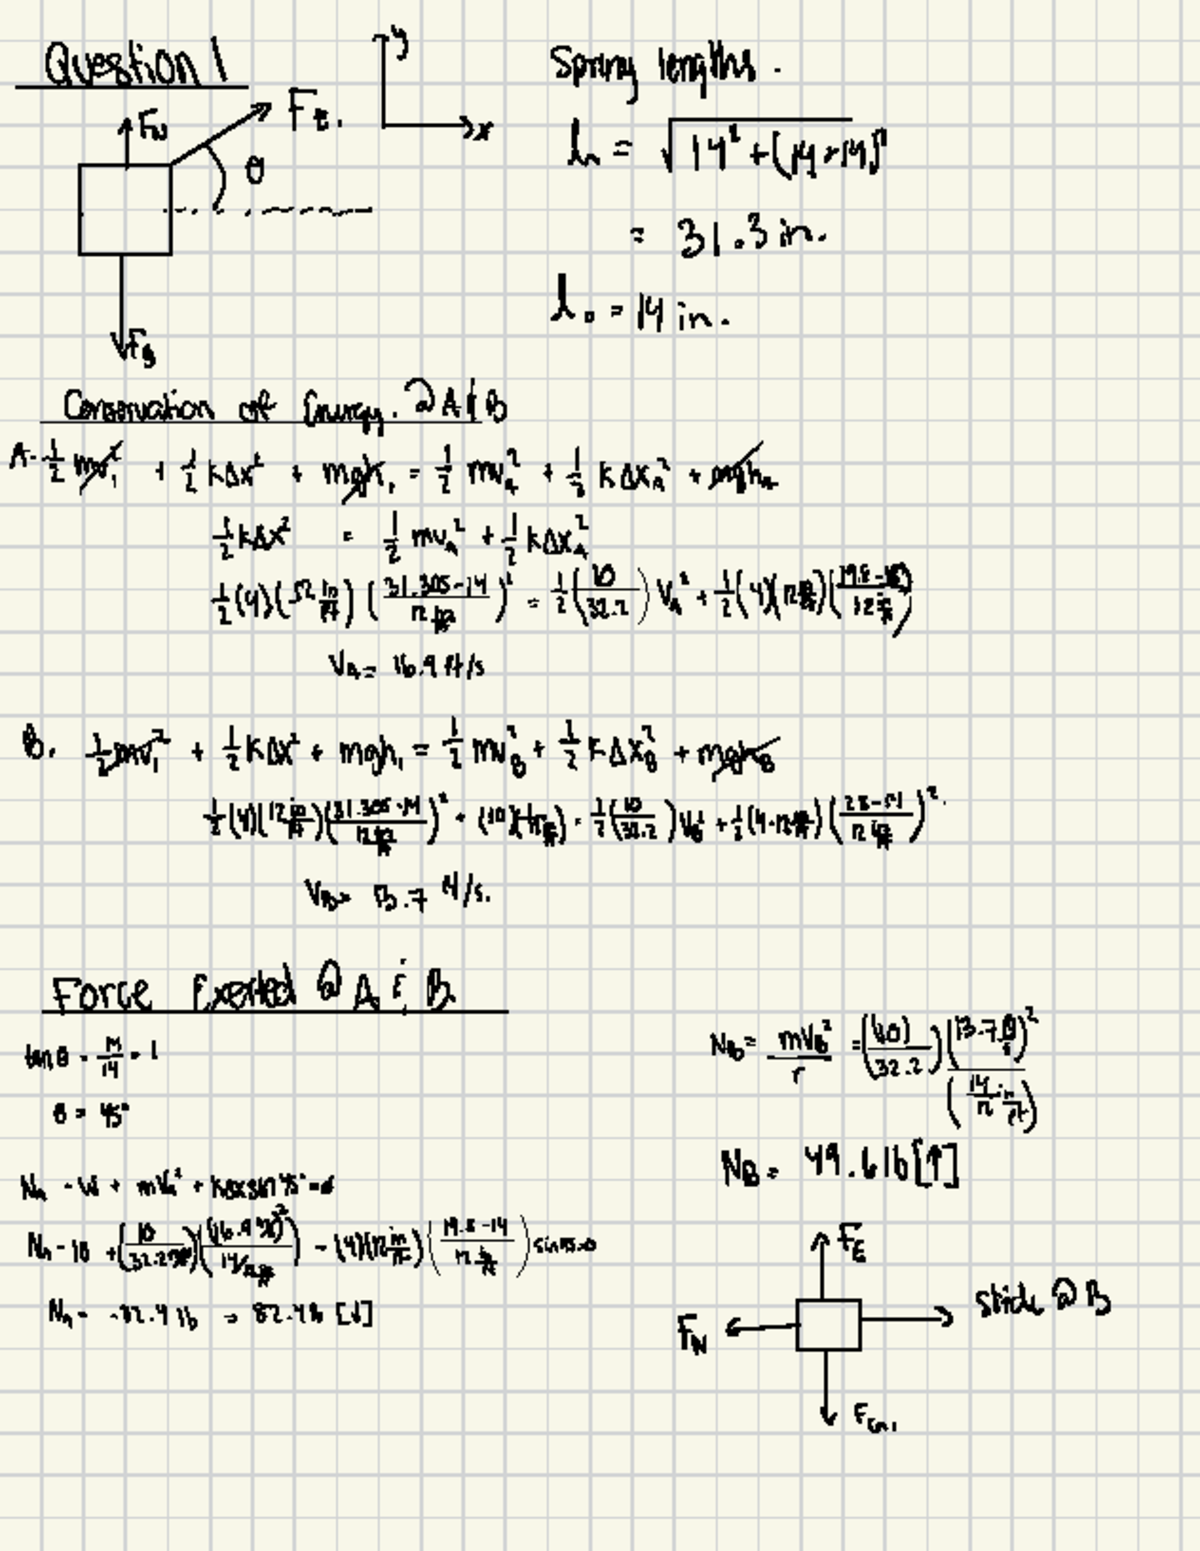 Question 1
y
x
F_N
F_E.
θ
F_g
Spring lengths.
l₁ = √14² + (14+14)²
= 31.3 in.
l₀ = 14 in.
Conservation of Energy. @ A & B
A. ½ mv₁² + ½ kΔx² + mgh₁ = ½ mv_A² + ½ kΔx_A² + mgh_A
½ kΔx² = ½ mv_A² + ½ kΔx_A²
½(4)(12 in/ft)((31.305-14)/(12 in/ft))² = ½(10/32.2) V_A² + ½(4)(12 in/ft)((19.8-14)/(12 in/ft))²
V_A = 16.9 ft/s
B. ½ mv₁² + ½ kΔx² + mgh₁ = ½ mv_B² + ½ kΔx_B² + mgh_B
½(4)(12 in/ft)((31.305-14)/(12 in/ft))² + (10) = ½(10/32.2) V_B² + ½(4·12 in/ft)((28-14)/(12 in/ft))².
V_B = 13.7 ft/s.
Force Exerted @ A & B
tan θ = 14/14 = 1
θ = 45°
N_A - W + mV_A² + kΔx sin45° = 0
N_A - 10 + (10/32.2)((16.9)²/(14/12)) - (4)(12 in/ft)((19.8-14)/(12 in/ft)) sin45=0
N_A = -82.4 lb → 82.4 lb [↓]
N_B = mV_B²/r = (10)/(32.2) (13.7)²/(14/12 in/ft)
N_B = 49.6 lb [↑]
F_E
F_N
slide @ B